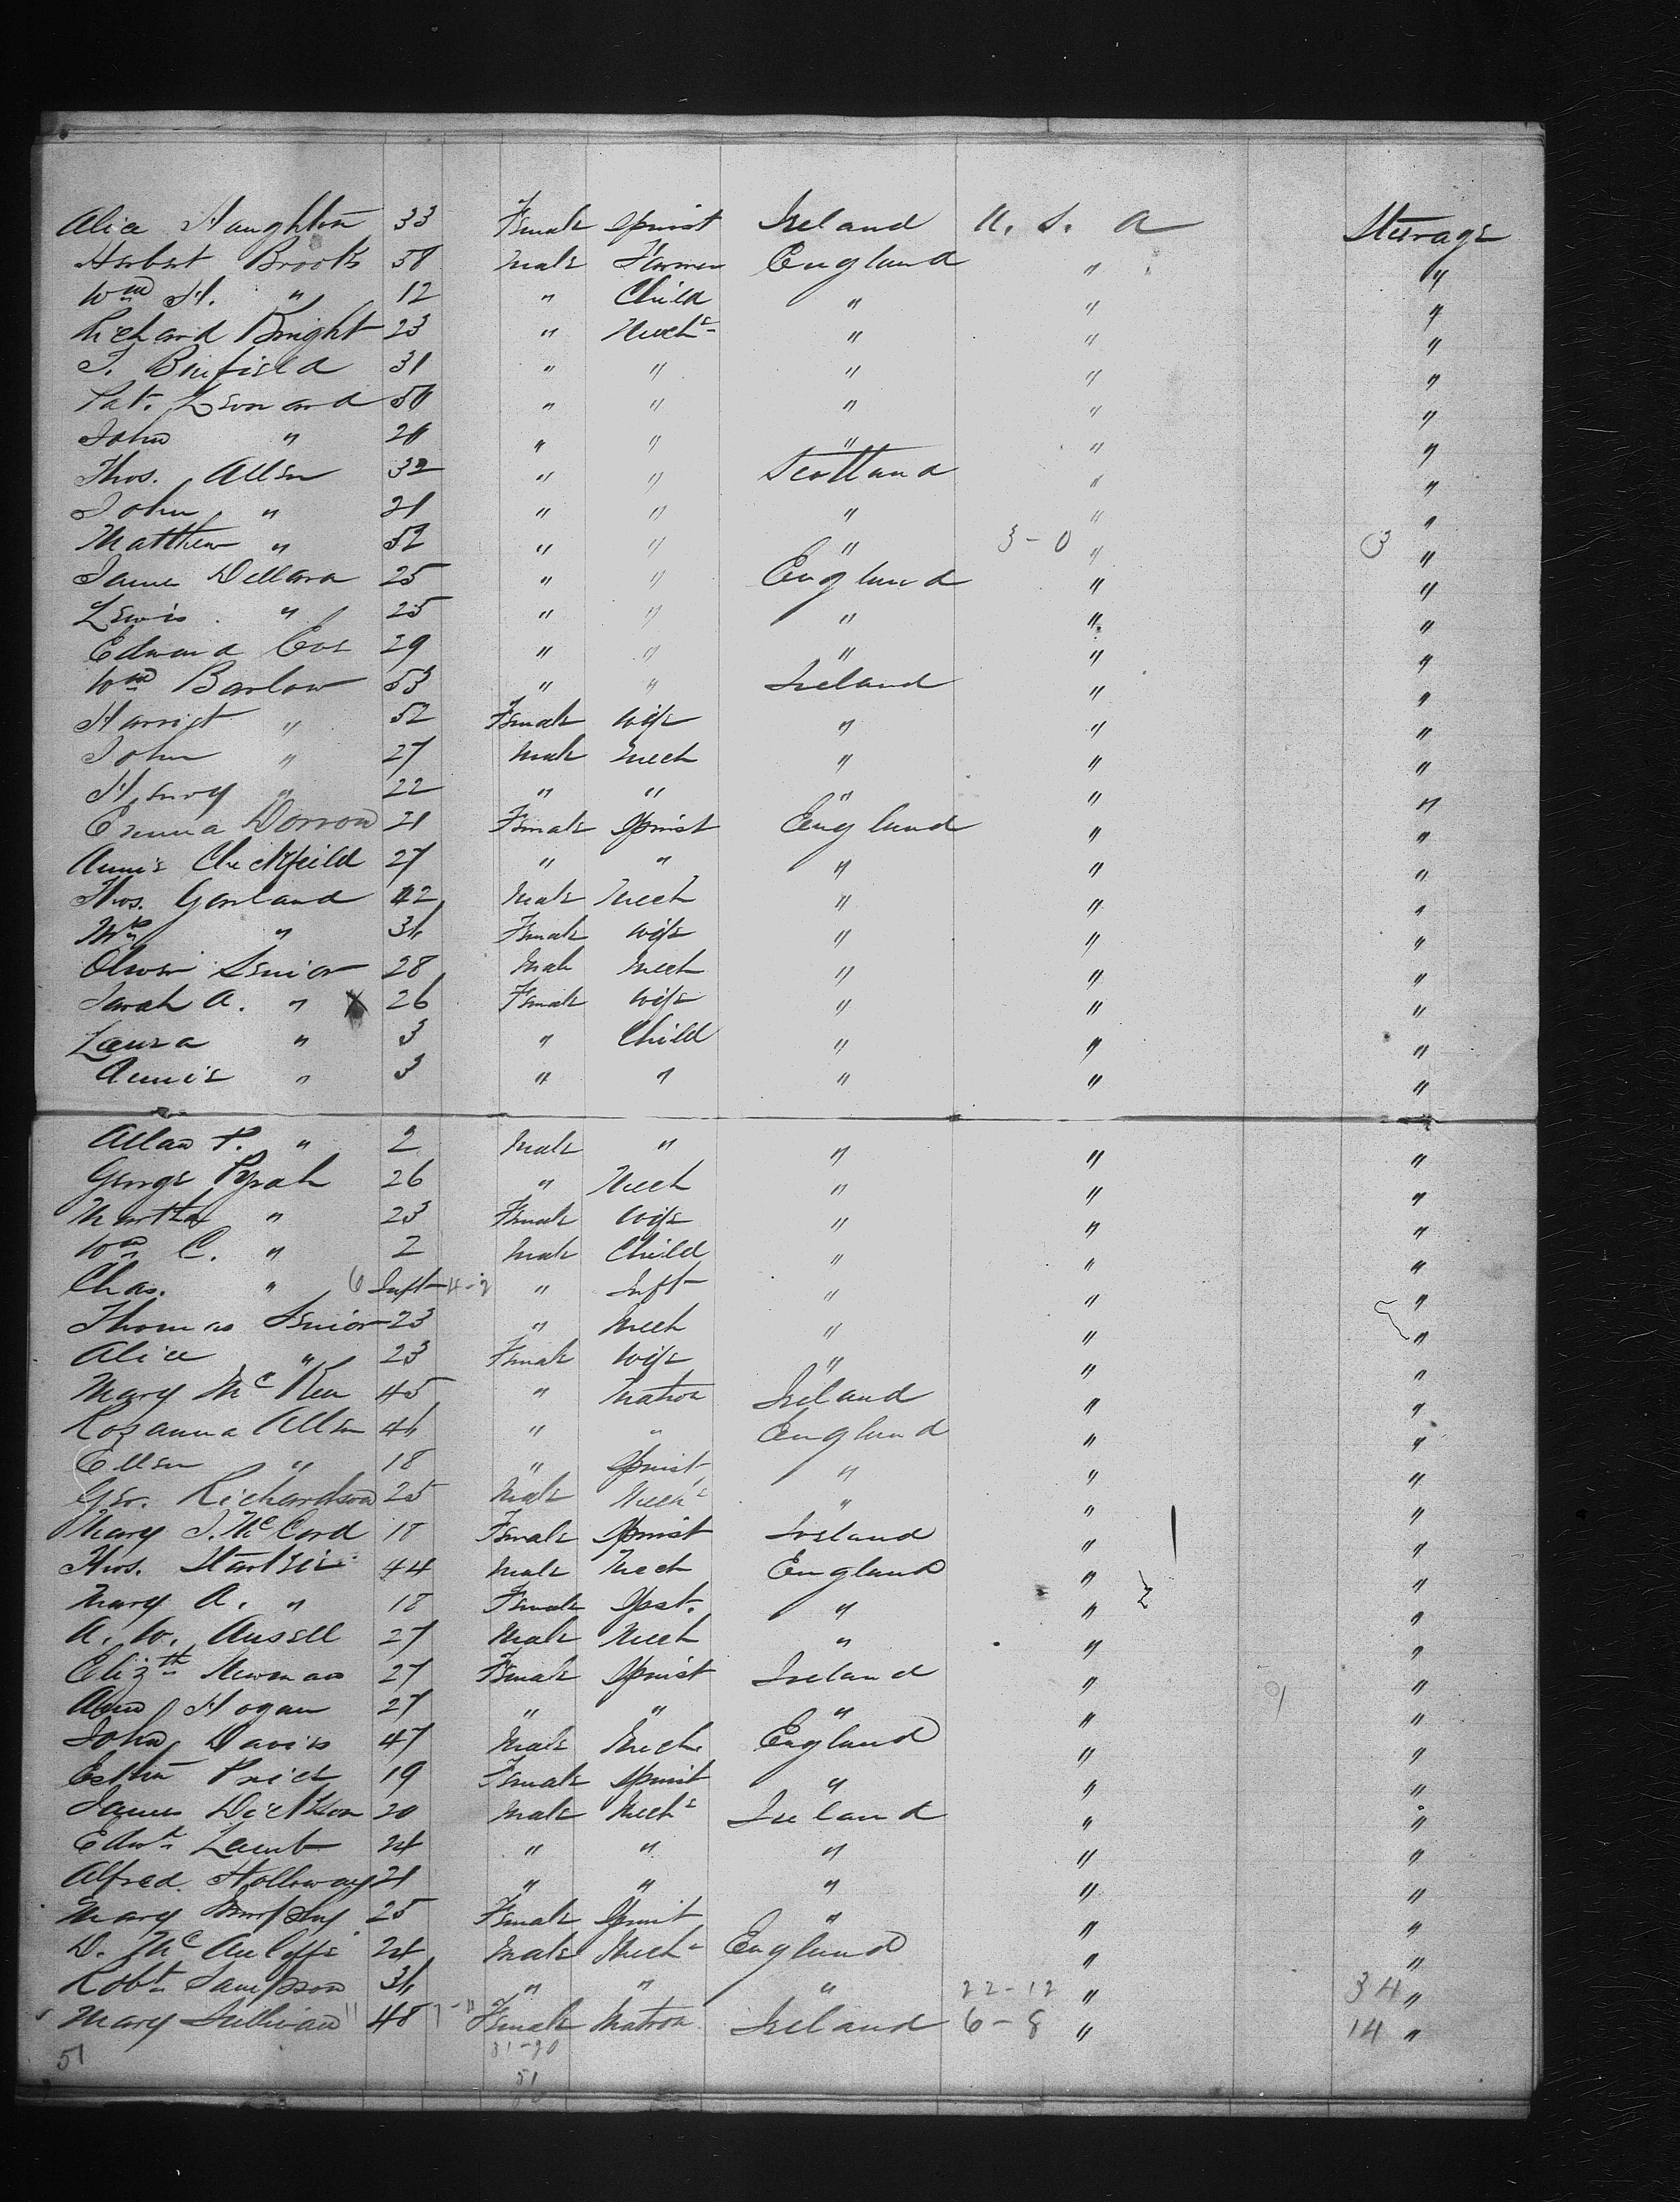 Alice Haughton 33 Female Spinst Ireland U. S. A Steerage
Herbert Brooks 38 Male Farmer England " "
Wm H. " 12 " Child " " "
Richard Knight 23 " Mechc " " "
T. Binfield 31 " " " " "
Pat. Leonard 50 " " " " "
John " 20 " " " " "
Thos. Allen 32 " " Scotland " "
John " 21 " " " " "
Matthew " 52 " " " 3-0 " 3 "
James 25 " " England " "
Lewis " 25 " " " " "
Edward Cox 29 " " " " "
Wm Barlow 53 " " Ireland " "
Harriet " 52 Female Wife " " "
John " 27 Male Mech " " "
Henry " 22 " " " " "
Emma 21 Female Spinst England " "
Annie 27 " " " " "
Thos. Garland 42 Male Mech " " "
Mrs " 36 Female Wife " " "
Oliver Senior 28 Male Mech " " "
Sarah A. " X 26 Female Wife " " "
Laura " 3 " Child " " "
Annie " 3 " " " " "
Allan P. " 2 Male " " " "
George Pyrah 26 " Mech " " "
Martha " 23 Female Wife " " "
Wm C. " 2 Male Child " " "
Chas. " 6 Inft 4-2 " Inft " " "
Thomas Senior 23 " Mech " " "
Alice " 23 Female Wife " " "
Mary Mc 45 " Matron Ireland " "
Rosanna Allen 46 " " England " "
Ellen " 18 " Spinst " " "
Geo. Richardson 25 Male Mechc " " "
Mary J. McCord 18 Female Spinst Ireland " "
Thos. 44 Male Mech England " "
Mary A. " 18 Female Spst. " " 2 "
A. W. Ansell 27 Male Mech " " "
Elizth Newman 27 Female Spinst Ireland " "
Ann Hogan 27 " " " " "
John Davis 47 Male Mech. England " "
Esther Price 19 Female Spinst " " "
James Dickson 20 Male Mechc Ireland " "
Lamb 24 " " " " "
Alfred Holloway 21 " " " " "
Mary Murphy 25 Female Spinst " " "
D. McAuliffe 24 Male Mechc England " "
Robt Sampson 36 " " " 22-12 " 34 "
Mary Sullivan 48 Female Matron Ireland 6-8 " 14 "
51 31-20
51